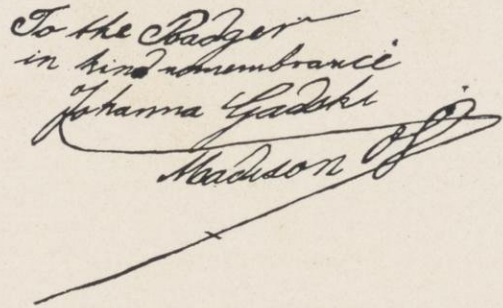 To the Badger
in kind remembrance
Johanna Gadski
Madison